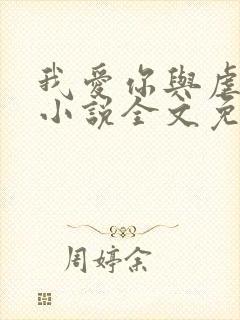 我愛你與虐
小說全文免
周婷余